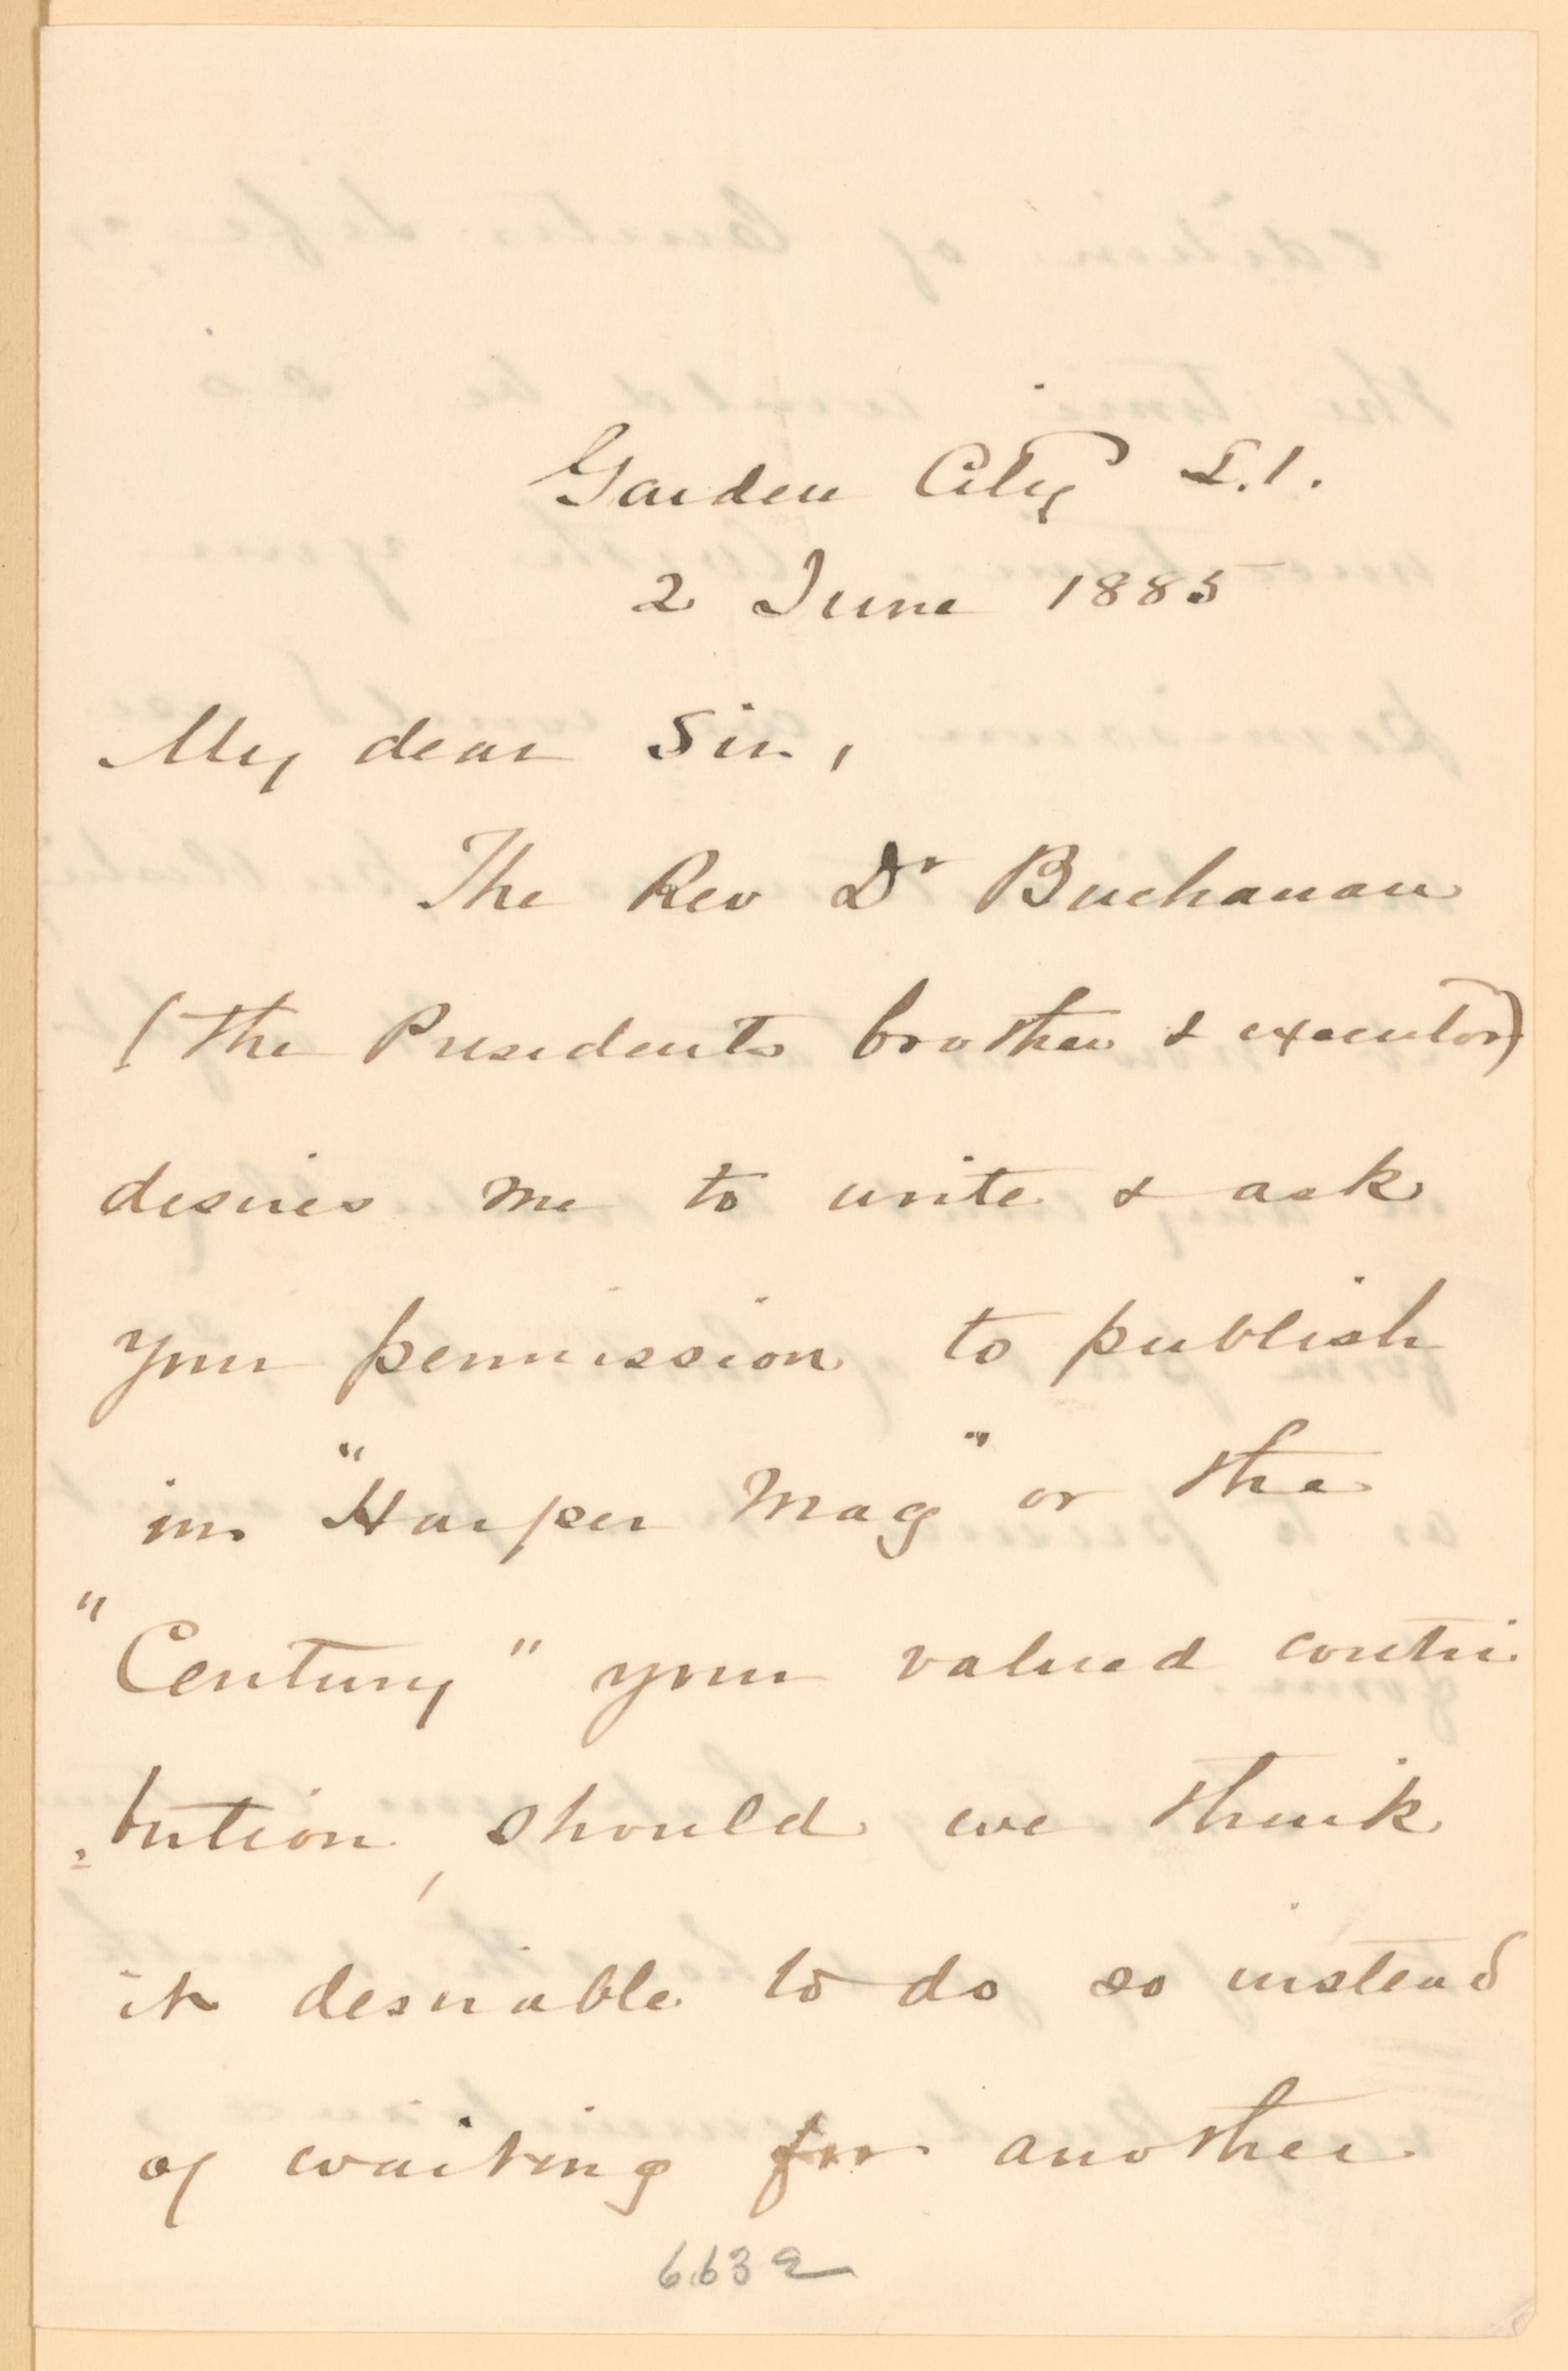 Garden City L.I.
2 June 1885
My dear Sir,
The Rev Dr Buchanan
(the Presidents brother & executor)
desires me to write & ask
your permission to publish
in "Harper Mag" or the
"Century" your valued contri-
-bution, should we think
it desirable to do so instead
of waiting for another